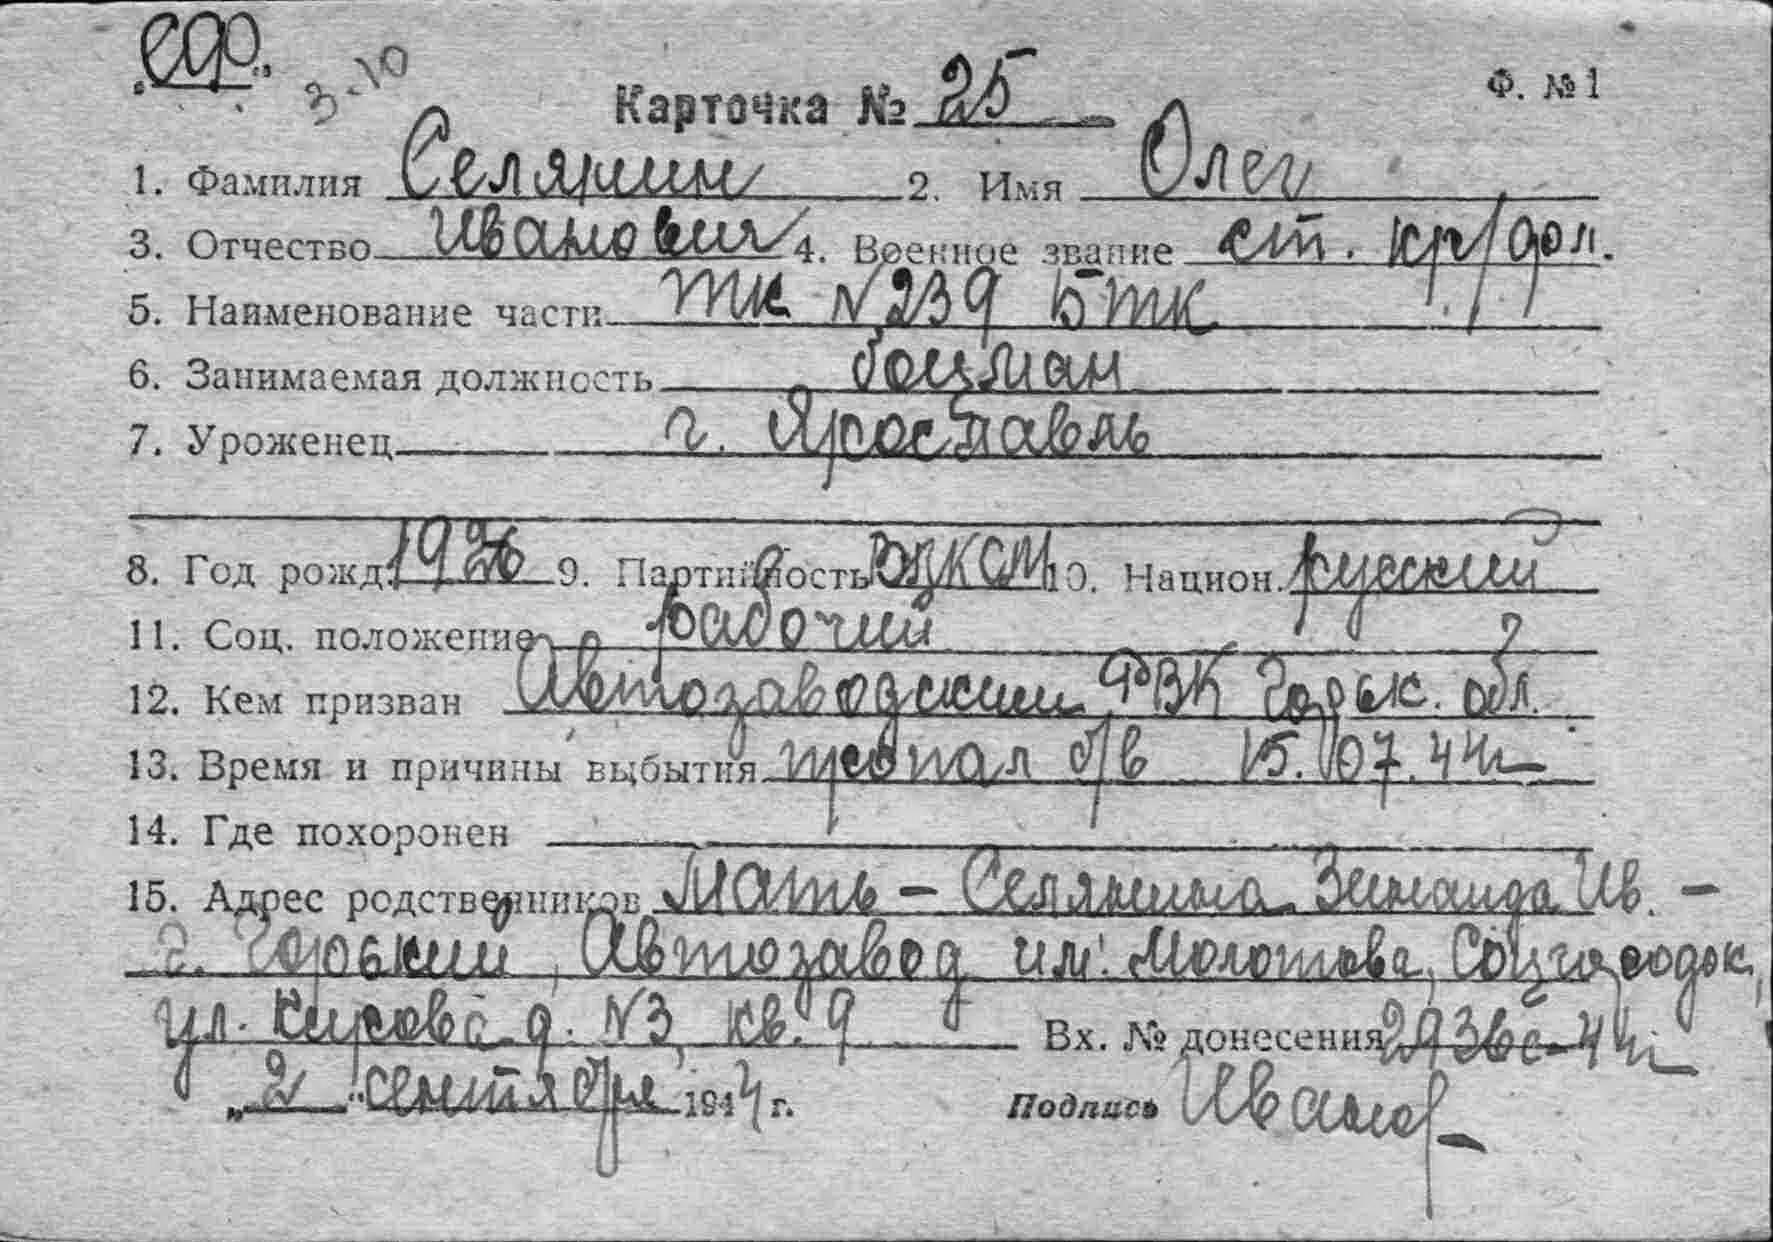 3-10
Ф. №1
Карточка № 25
1. Фамилия Селянин 2. Имя Олег
3. Отчество Иванович 4. Военное звание ст. кр/фл.
5. Наименование части ТК N 239 БТК
6. Занимаемая должность боцман
7. Уроженец г. Ярославль
8. Год рожд. 1926 9. Партийность ВЛКСМ 10. Национ. русский
11. Соц. положение рабочий
12. Кем призван Автозаводским РВК Горьк. обл.
13. Время и причины выбытия пропал б/в 15.07.44г
14. Где похоронен
15. Адрес родственников Мать - Селянина Зинаида Ив. -
г. Горький, Автозавод им. Молотова, Соцгородок,
ул. Кирова д. N3, кв. 9 Вх. № донесения 44г
„2" сентября 1944 г. Подпись Иванов